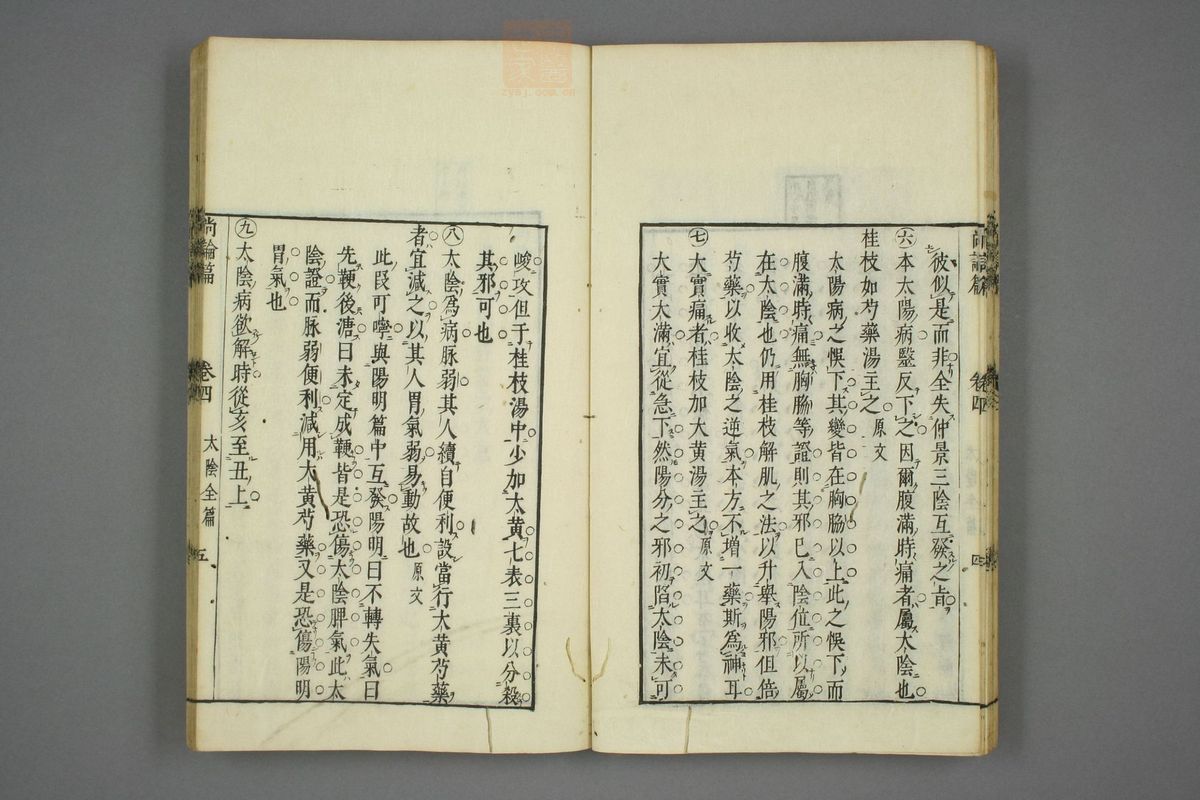 彼似是而非全失仲景三陰互發之旨
㊅本太陽病毉反下之因爾腹滿時痛者屬太陰也
桂枝加芍藥湯主之原文
太陽病之悞下其變皆在胸脇以上此之悞下而
腹滿時痛無胸脇等證則其邪已入陰位所以屬
在太陰也仍用桂枝解肌之法以升舉陽邪但倍
芍藥以收太陰之逆氣本方不增一藥斯爲神耳
㊆大實痛者桂枝加大黄湯主之原文
大實大滿宜從急下然陽分之邪初陷太陰未可
尚論篇 卷四 四
峻攻但于桂枝湯中少加大黄七表三裏以分殺
其邪可也
㊇太陰爲病脉弱其人續自便利設當行大黄芍藥
者宜減之以其人胃氣弱易動故也原文
此段叮嚀與陽明篇中互發陽明曰不轉失氣曰
先鞕後溏曰未定成鞕皆是恐傷太陰脾氣此太
陰證而脉弱便利減用大黄芍藥又是恐傷陽明
胃氣也
㊈太陰病欲解時從亥至丑上
尚論篇 卷四 太陰全篇 五
zysj.com.cn